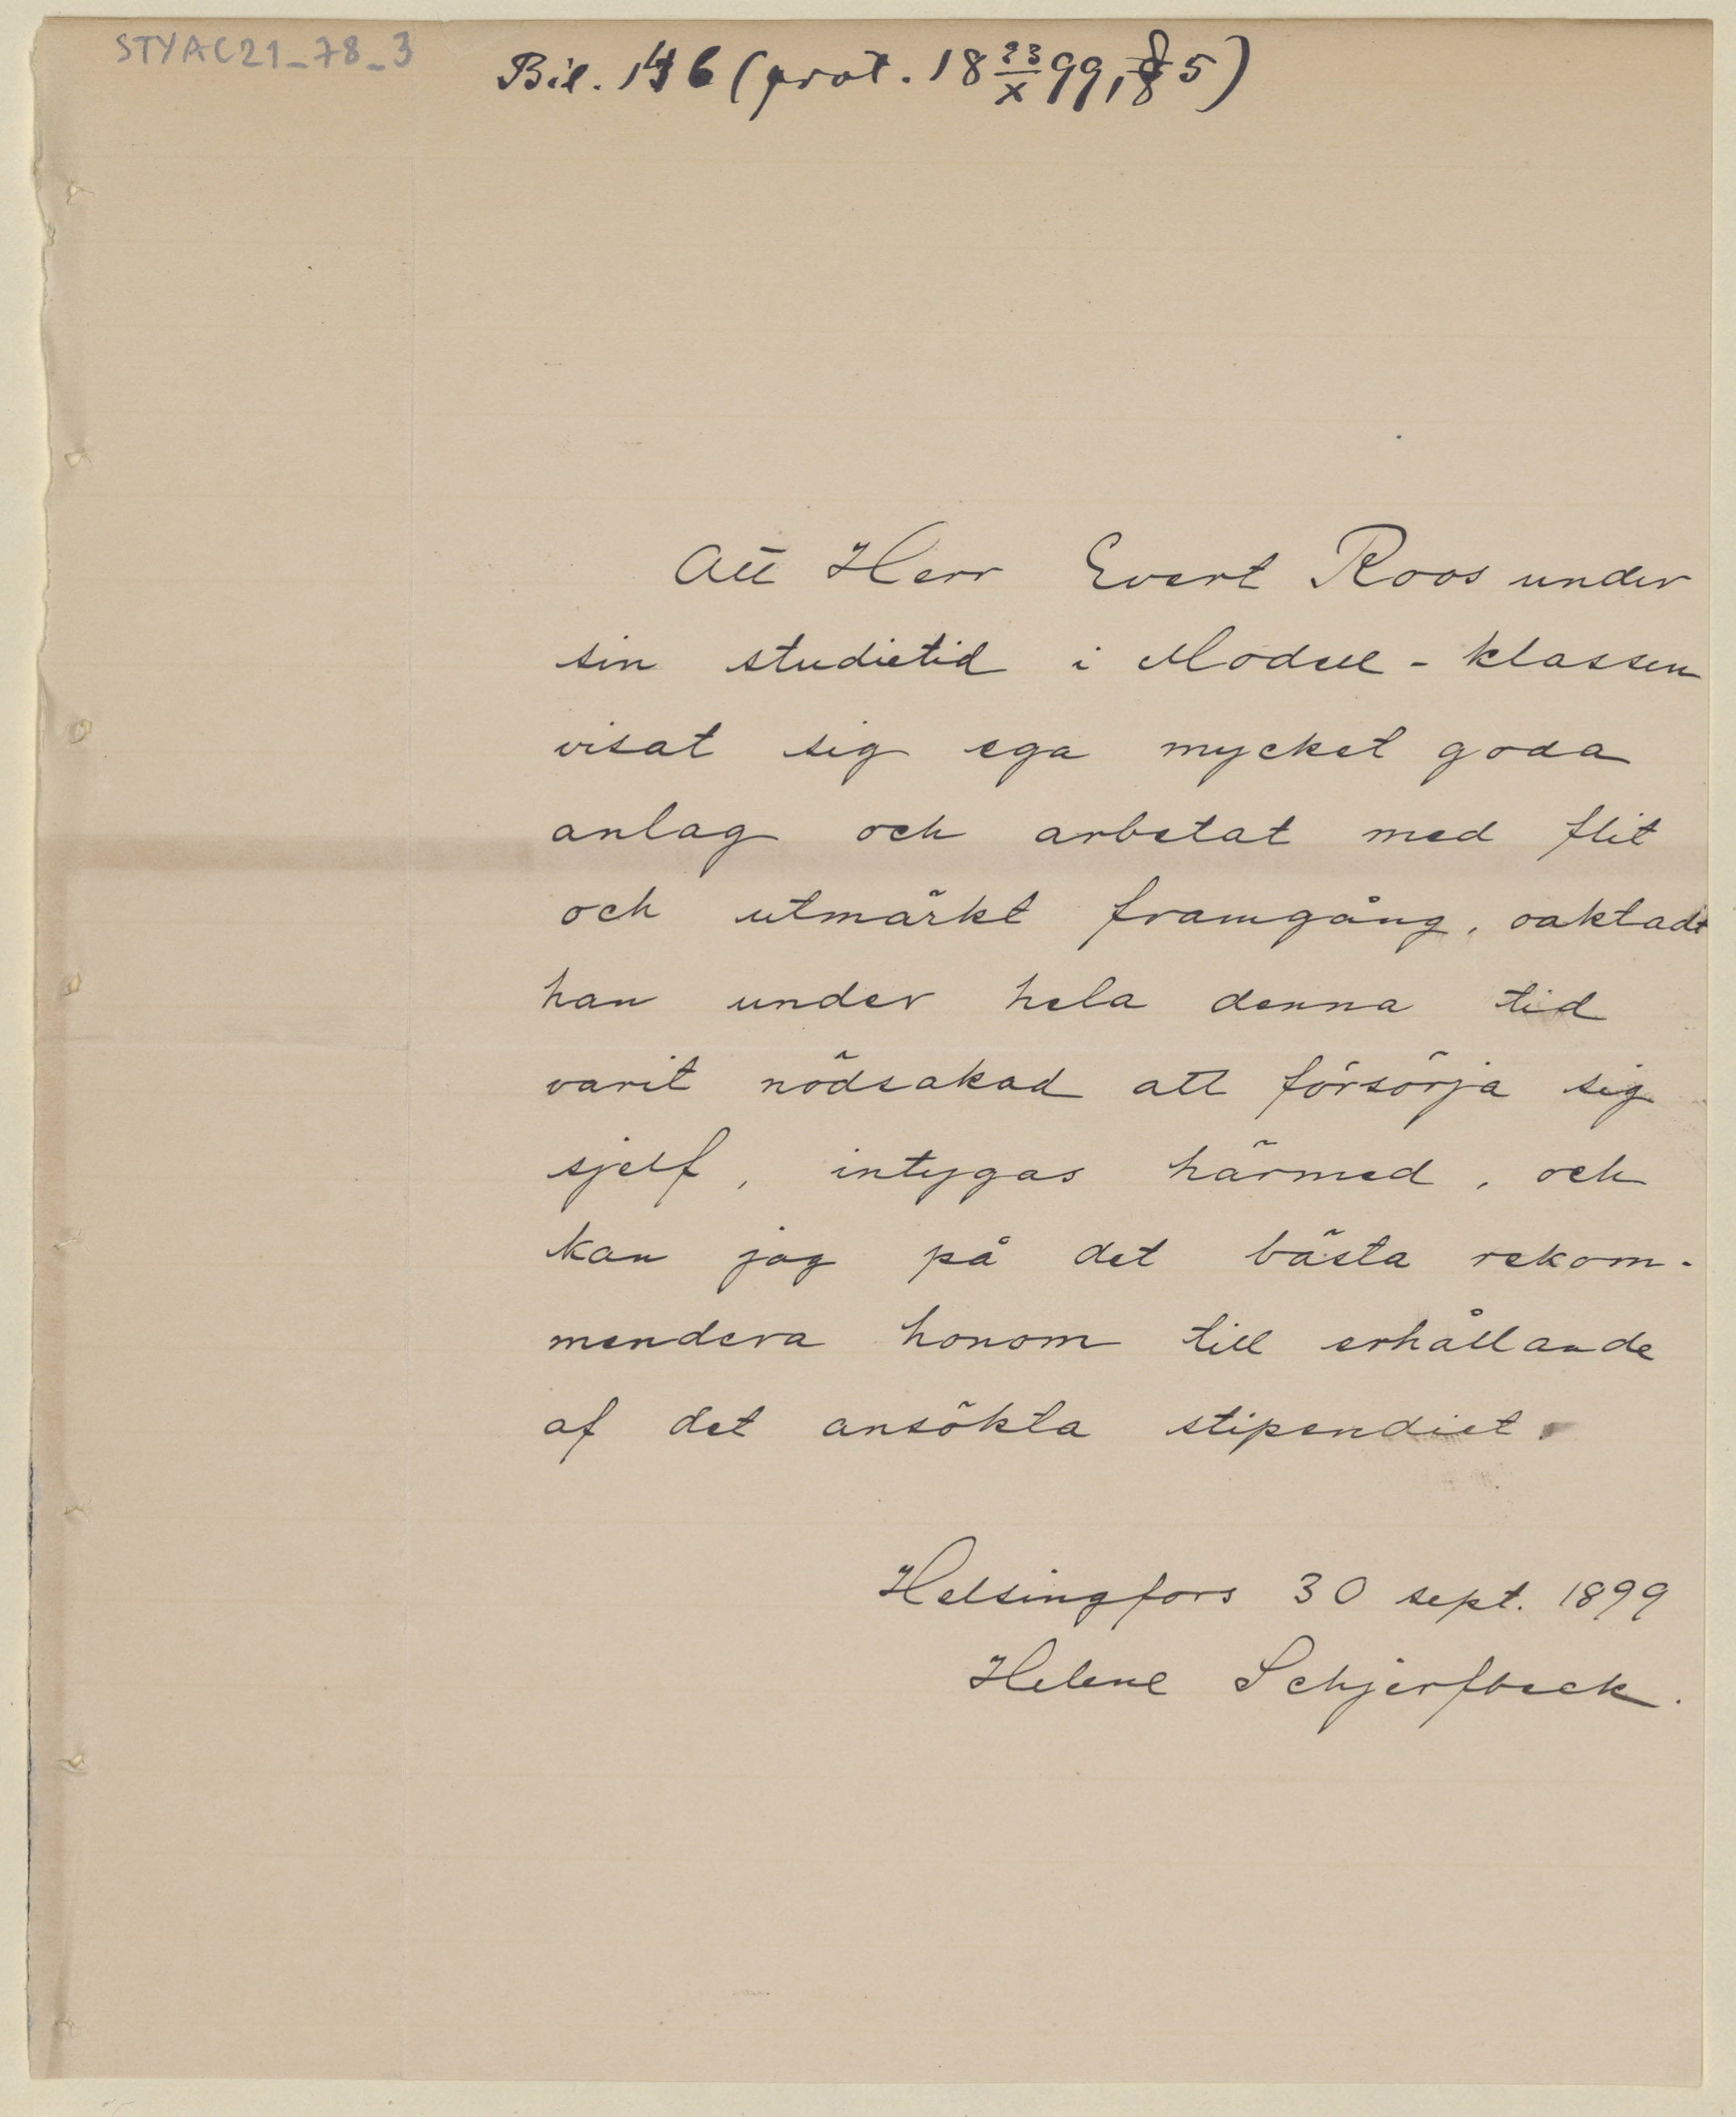 STYAC21_78_3
Bil. 146 (prot. 18 23/X 99, § 5)
Att Herr Evert Roos under
sin studietid i Modell-klassen
visat sig ega mycket goda
anlag och arbetat med flit
och utmärkt framgång, oaktadt
han under hela denna tid
varit nödsakad att försörja sig
sjelf, intygas härmed, och
kan jag på det bästa rekom-
mendera honom till erhållande
af det ansökta stipendiet.
Helsingfors 30 sept. 1899
Helene Schjerfbeck.